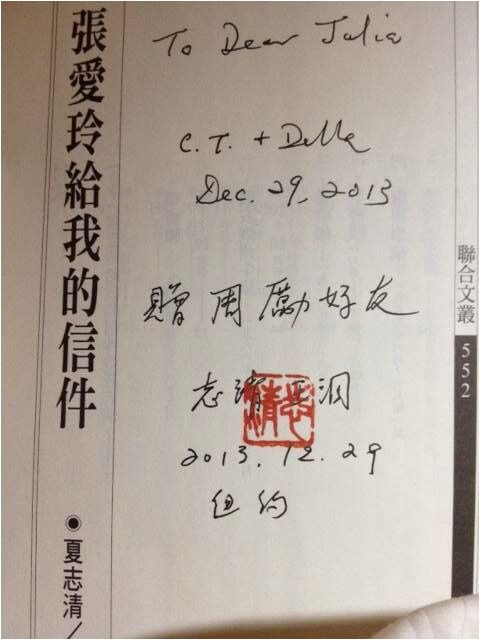 張愛玲給我的信件
◉夏志清/
To Dear Julia
C.T. + Della
Dec. 29, 2013
贈周勵好友
志清 王洞
2013. 12. 29
纽约
志清
聯合文叢
552